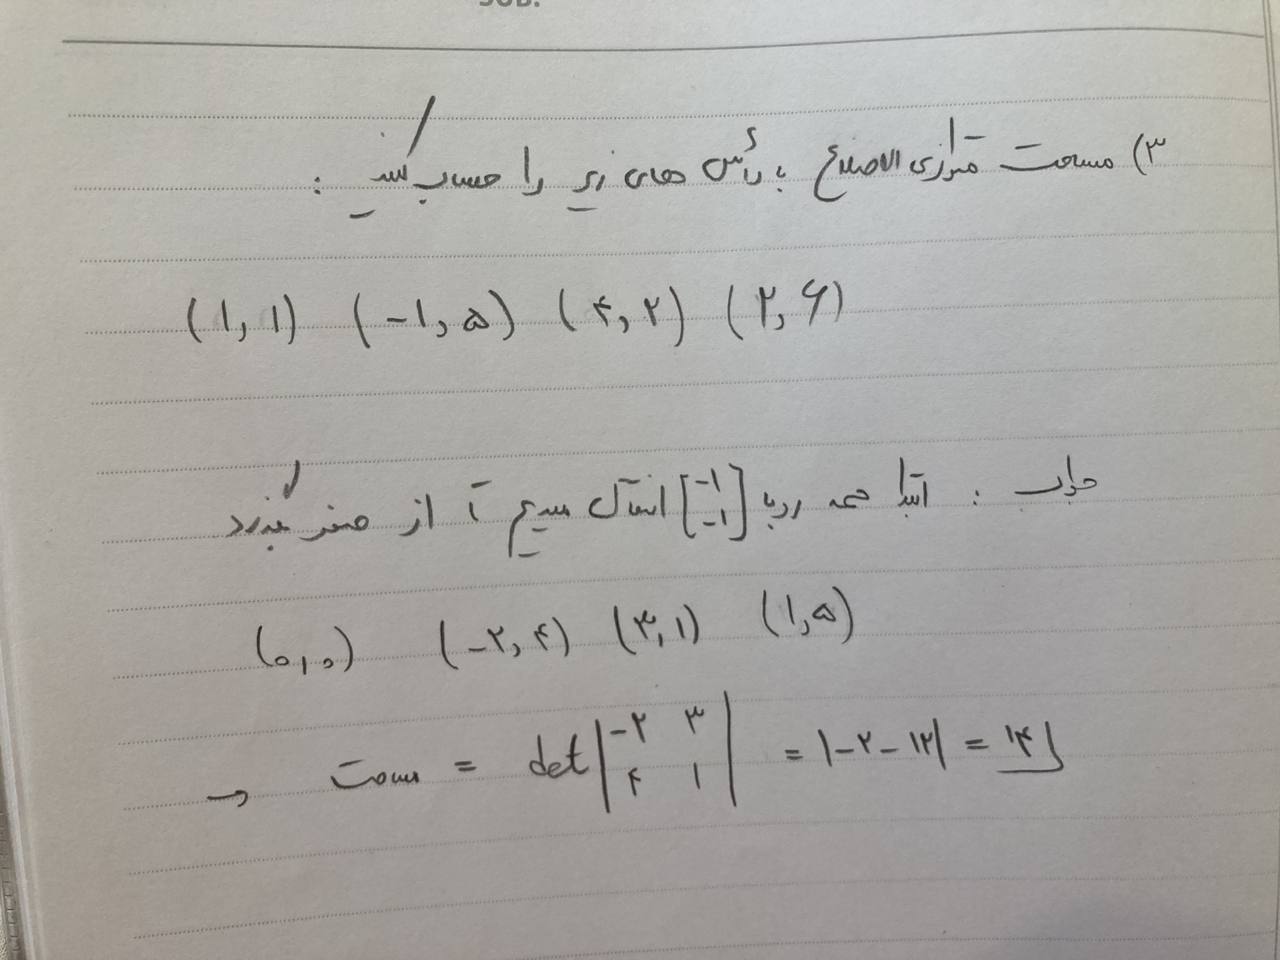 SUB.
۳) مساحت متوازی الاضلاع با رأس های زیر را حساب کنید :
(۱,۱) (-۱,۵) (۴,۲) (۲,۶)
جواب : ابتدا همه رو با [-۱ -۱] انتقال میدیم تا از صفر بگذرد
(۰,۰) (-۲,۴) (۳,۱) (۱,۵)
→ مساحت = det |-۲ ۳ ۴ ۱| = |-۲-۱۲| = ۱۴